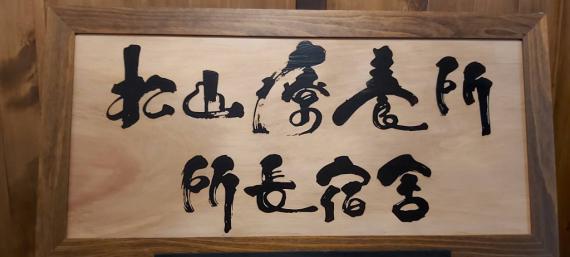 松山療養所
所長宿舎